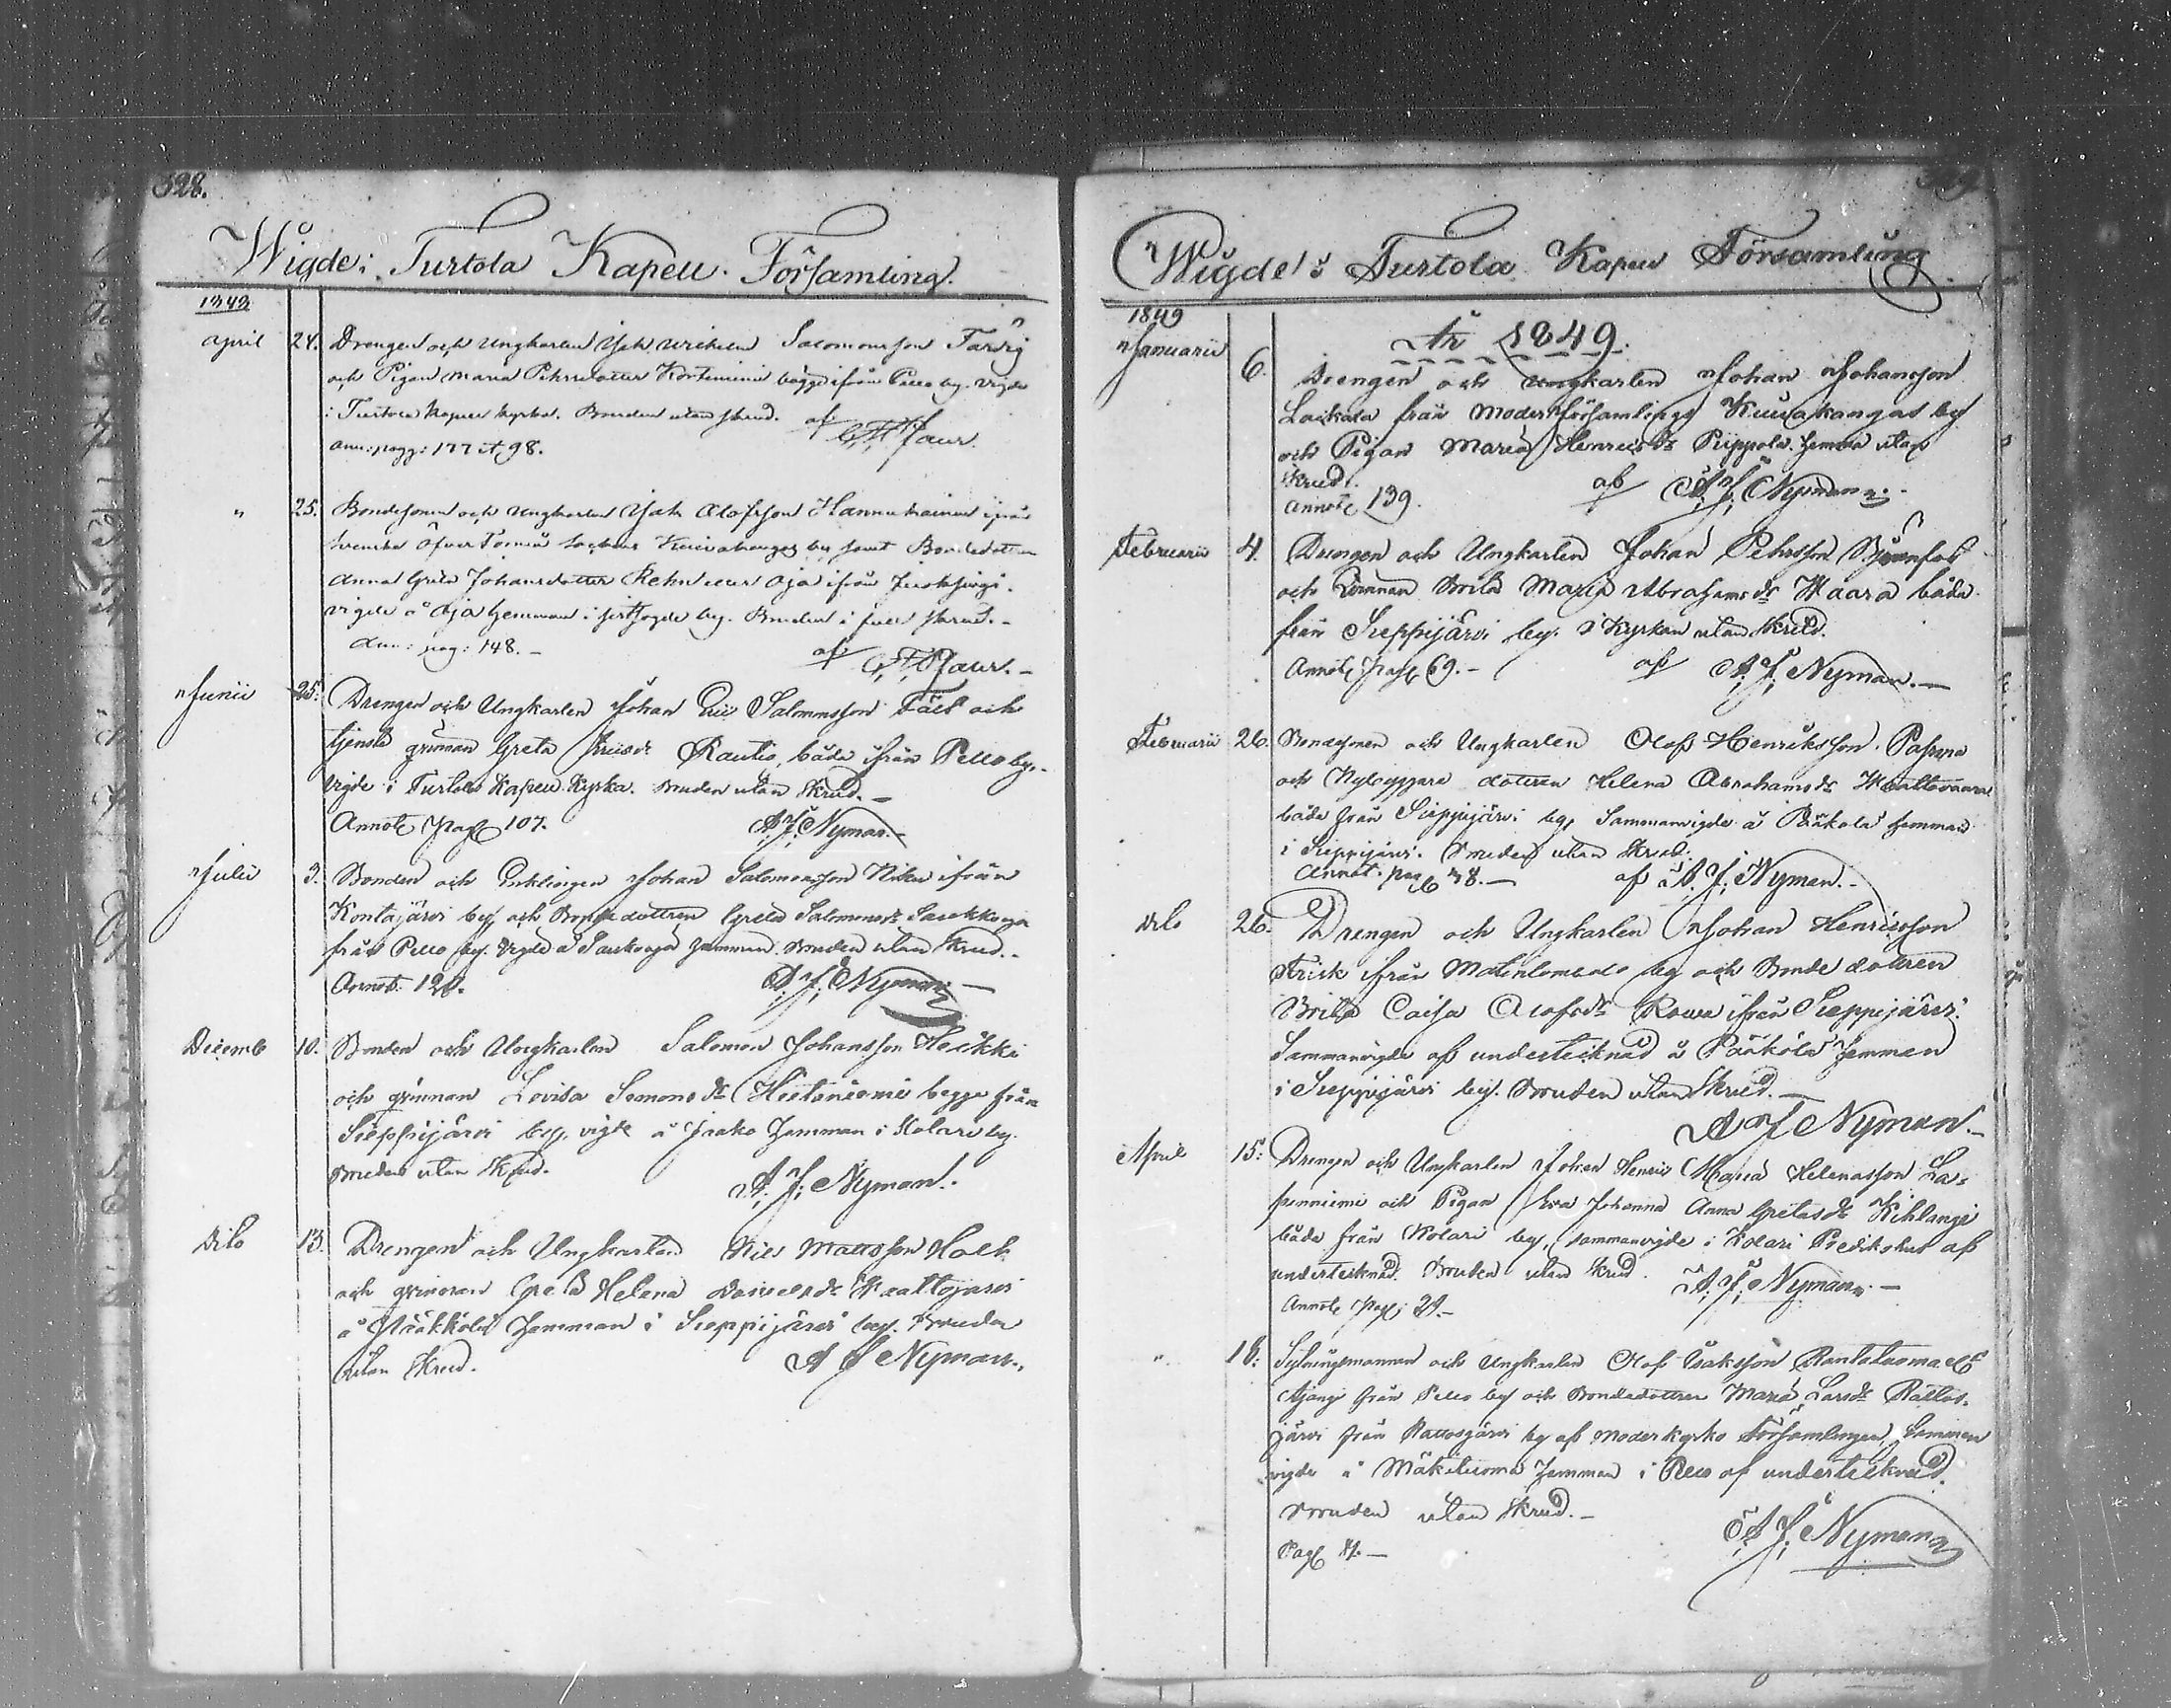 328.
Wigde i Turtola Kapell Församling.
1848
April 24. Drengen och Ungkarlen Isak Wilhelm Salomonsson
och Pigan Maria Pehrsdotter Kortiniemi bägge ifrån Pello by. vigde
i Turtola Kapell kyrka. Bruden utan skrud. af
ann: pagg: 177 et 98.
" 25. Bondesonen och Ungkarlen Isak Olofsson Hannukainen ifrån
Svenska Öfver Torneå Sockens Kuivakangas by samt Bondedottren
Anna Greta Johansdotter Oja ifrån
vigde å Oja hemman i by. Bruden i full skrud.-
Ann: pag: 148.- af
Junii 25. Drengen och Ungkarlen Johan Eric Salomonsson Fält och
tjenste qvinnan Greta Ericsdr Rautio, både ifrån Pello by.
vigde i Turtola Kapell Kyrka. Bruden utan skrud.-
Annot. Pag. 107. A. J. Nyman.-
Julii 9. Bonden och Enklingen Johan Salomonsson Niska ifrån
Kontajärvi by och Bondedottren Greta Salomonsdr
från Pello by. Vigde å hemman. Bruden utan skrud.-
Annot. A. J. Nyman
Decemb 10. Bonden och Ungkarlen Salomon Johansson Heikki
och qvinnan Lovisa Simonsdr Hietaniemi begge från
Sieppijärvi by, vigde å Jaako hemman i Kolari by.
Bruden utan skrud. A. J. Nyman.
Dito 13. Drengen och Ungkarlen Nils Mattsson Hack
och qvinnan Greta Helena Danielsdr Kaaltojärvi
å Pääkkölä hemman i Sieppijärvi by. Bruden
utan skrud. A J Nyman.
Wigde i Turtola Kapell Församling
1849
År 1849.
Januarii 6. Drengen och Ungkarlen Johan Johansson
Laikala från Moder Församlings Kuivakangas by
och Pigan Maria Henricsdr Piippola hemma utan
skrud. af A. J. Nyman.
Annot. 139.
Februarii 4. Drengen och Ungkarlen Johan Pehrsson Björnfot
och Qvinnan Brita Maria Abrahamsdr Waara båda
från Sieppijärvi by. i Kyrkan utan skrud.
Annot. pag. 69.- af A. J. Nyman.-
Februarii 26. Bondesonen och Ungkarlen Olof Henriksson
och Nybyggare dottren Helena Abrahamsdr Waaltovaara
både från Sieppijärvi by, Sammanvigde å Pääkölä hemman
i Sieppijärvi. Bruden utan skrud.
Annot. pag. 78.- af A. J. Nyman.-
Dito 26. Drengen och Ungkarlen Johan Henricsson
Frisk ifrån Matinlompolo by och Bonde dottren
Brita Caisa Olofsdr Rowa ifrån Sieppijärvi.
Sammanvigde af undertecknad å Pääkölä hemman
i Sieppijärvi by. Bruden utan skrud.-
A J Nyman.-
April 15. Drengen och Ungkarlen Johan Henric Maria Helenasson La-
panniemi och Pigan Eva Johanna Anna Gretasdr Kihlangi
både från Kolari by, sammanvigde i Kolari Predikohus af
undertecknad. Bruden utan skrud. A. J. Nyman.-
Annot. pag. 29.-
" 18. Sytningsmannen och Ungkarlen Olof Isaksson Rantatuoma
från Pello by och Bondedottren Maria Larsdr Rattos-
järvi från Rattosjärvi by af Moderkyrko Församlingen, Samman
vigde å Mäkituoma hemman i Pello af undertecknad.
Bruden utan skrud.-
A. J. Nyman
Pag.